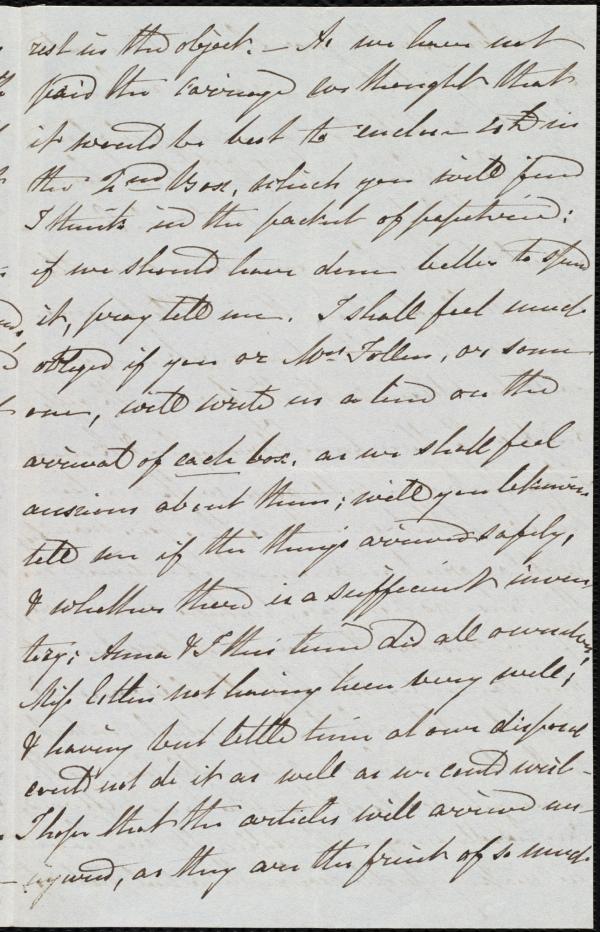 rest in the object. – As we have not
paid the carriage we thought that
it would be best to enclose it in
the 2nd Box, which you will find
I think in the packet of papeterie:
if we should have done better to spend
it, pray tell me. I shall feel much
obliged if you or Mrs Follen, or some
one, will write us a line on the
arrival of each box, as we shall feel
anxious about them; will you likewise
tell me if the things arrived safely,
& whether there is a sufficient inven-
tory; Anna & I this time did all ourselves,
Miss Estlin not having been very well;
& having but little time at our disposal
could not do it as well as we could wish –
I hope that the articles will arrive un-
injured, as they are the fruit of so much